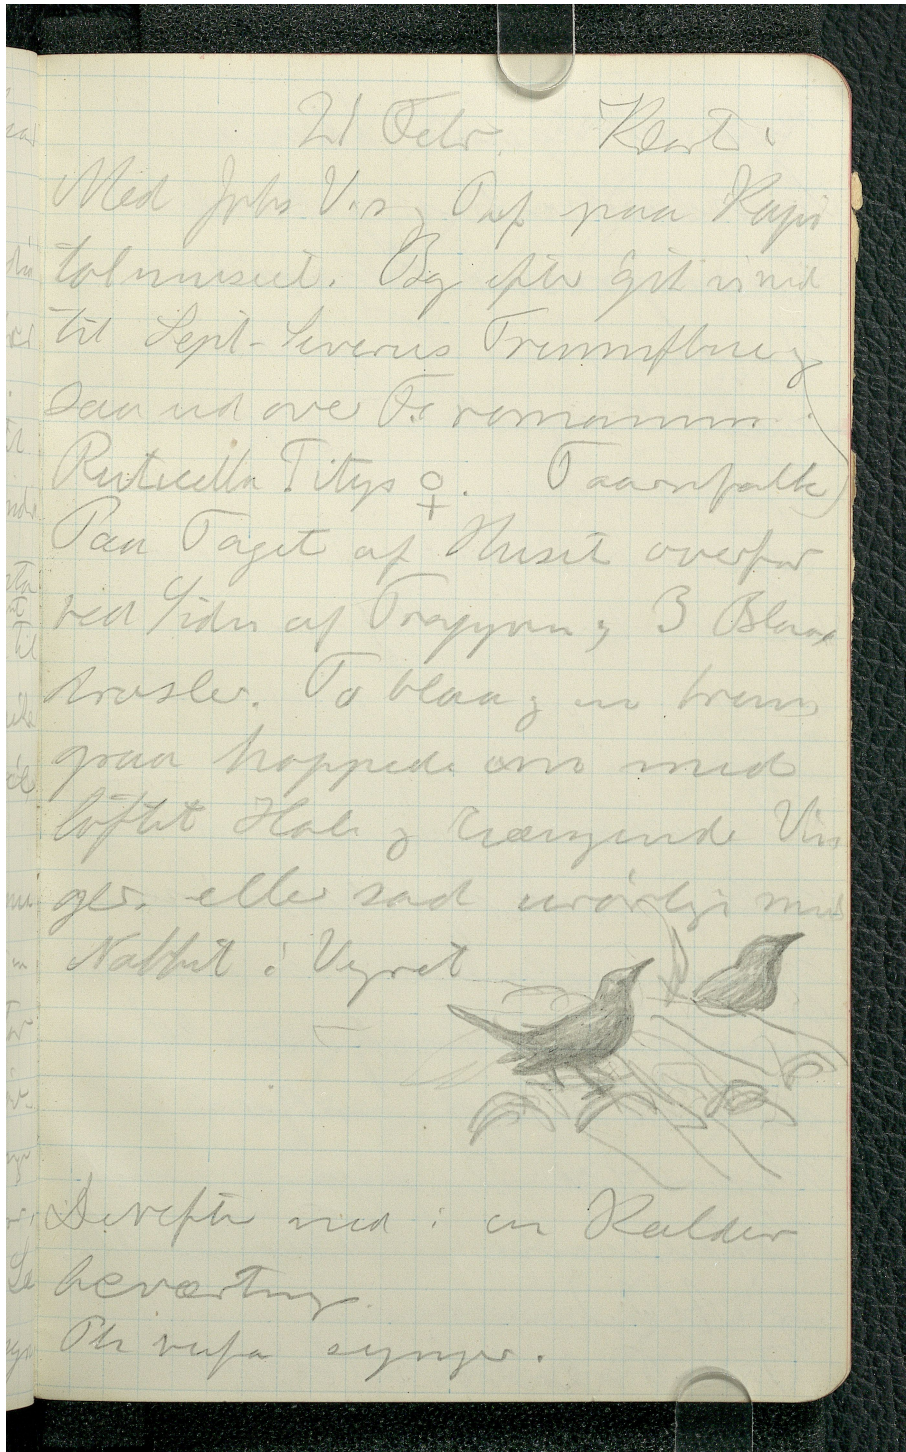 21 Febr. Klart.
Med Johs V. og Puf paa Kapi
tolmuseet. Bag efter gik vi ned
til Sept-Severus Triumfbue og
saa ud over Fo romanum.
Ruticilla Titys ♀. Taarnfalk
Paa Taget af Huset overfor
ved Siden af Trappen og 3 Blaa
drosler. To blaa og en brun
graa hoppede om med
löftet Hale og hængende Vin
ger. eller sad urörlige med
Næbbet i Vejret
Derefter ned i en Kælder
beværtning.
Ph rufa synger.